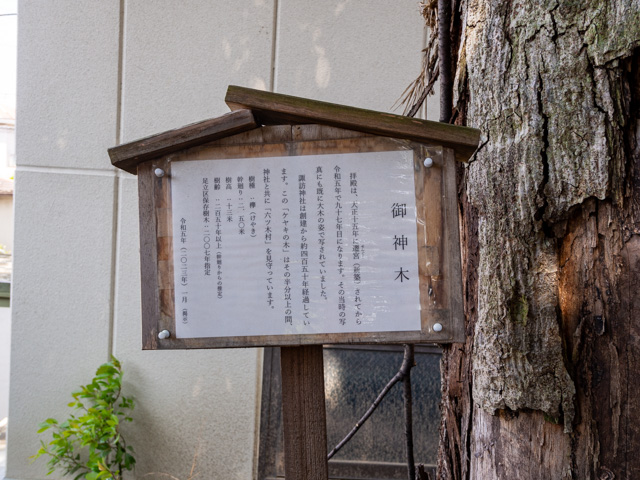 御神木
拝殿は、大正十五年に遷宮（新築）されてから
令和五年で九十七年目になります。その当時の写
真にも既に大木の姿で写されていました。
諏訪神社は創建から約四百五十年経過してい
ます。この「ケヤキの木」はその半分以上の間、
神社と共に「六ツ木村」を見守っています。
樹種：欅（けやき）
幹廻り：二．五〇米
樹高：十三米
樹齢：二百五十年以上（幹廻りからの推定）
足立区保存樹木：二〇〇七年指定
令和五年（二〇二三年）一月（掲示）